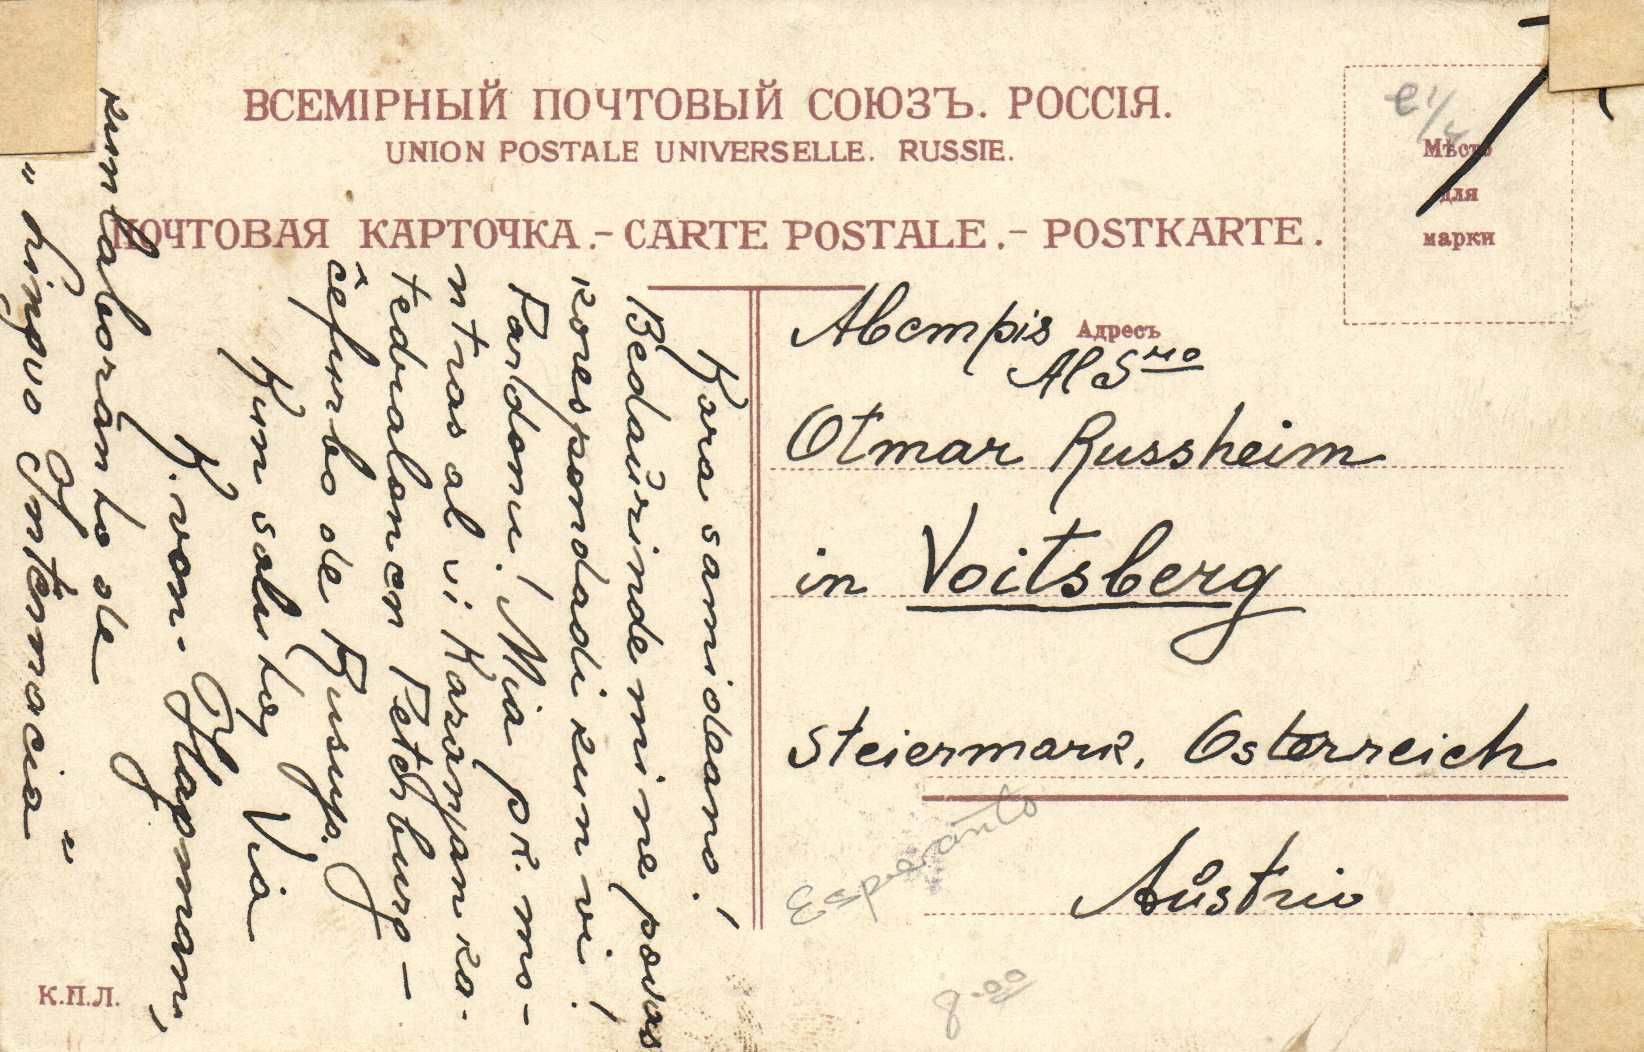 ВСЕМІРНЫЙ ПОЧТОВЫЙ СОЮЗЪ. РОССІЯ.
UNION POSTALE UNIVERSELLE. RUSSIE.
ПОЧТОВАЯ КАРТОЧКА.-CARTE POSTALE.-POSTKARTE.
Мѣсто
для
марки
Адресъ
Австрія
Al Sro
Otmar Russheim
in Voitsberg
Steiermark, Osterreich
Aŭstrio
Esperanto
8.00
Kara samideano!
Bedaŭrinde mi ne povas
korespondadi kun vi!
Pardonu! Mia pk. mo-
ntras al vi Kazanjan ka-
tedralon en Peterburg-
ĉefurbo de Rusujo.
Kun salutoj Via
K. von-Hapmann,
kunlaboranto de
"Lingvo Internacia"
К.П.Л.